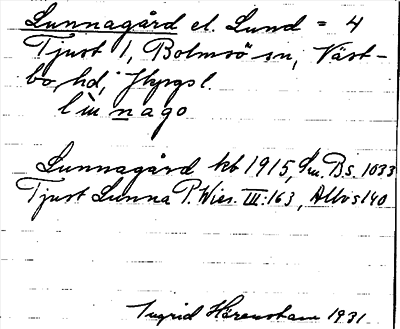 Lunnagård el. Lund = 4
Tjust 1, Bolmsö sn, Väst-
bo hd, Jkpgs l.
lùnago
Lunnagård kb 1915, Sm. Bs. 1033
Tjust Lunna P. Wies. III:163, Allvs 140
Ingrid Härenstam 1931